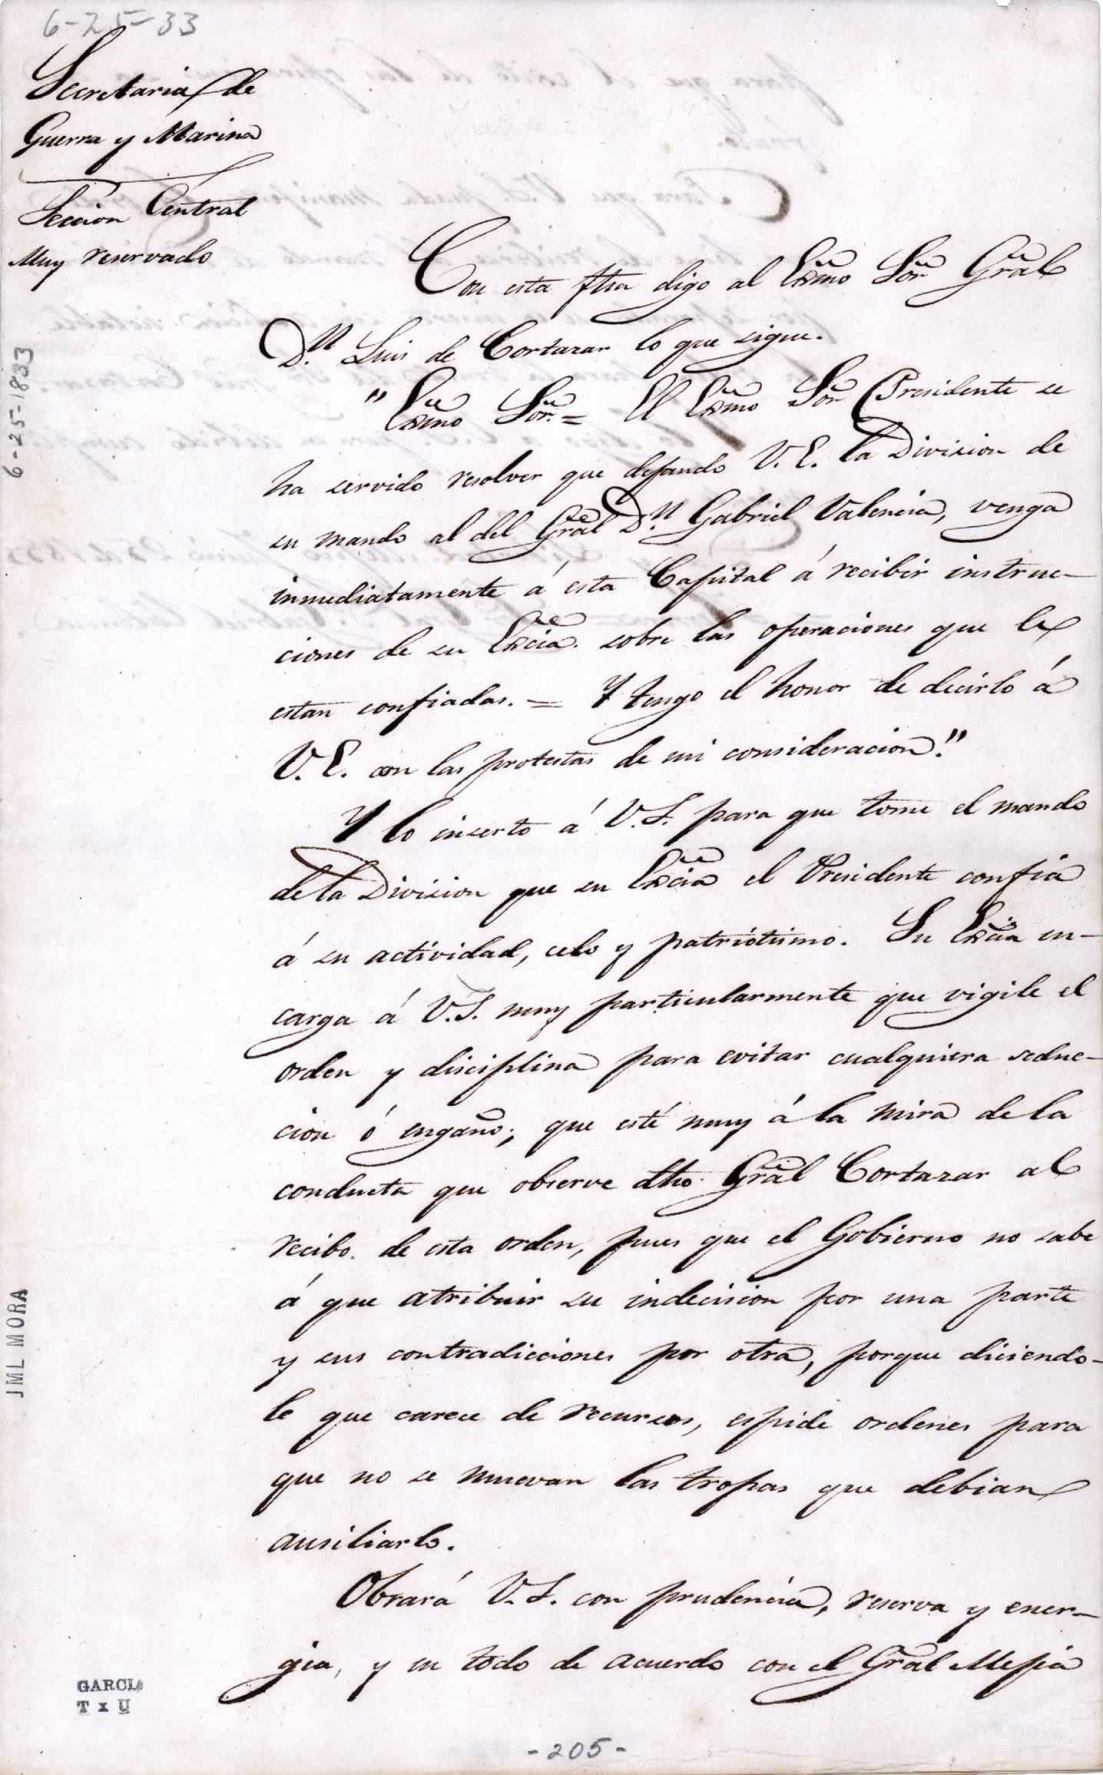 6-25-33
Secretaria de
Guerra y Marina
Sección Central
Muy reservado
6-25-1833
Con esta fha digo al Exmo Sor Gral
D.n Luis de Cortazar lo que sigue.
"Exmo Sor. = El Exmo Sor Presidente se
ha servido resolver que dejando V. E. la Division de
su mando al del Gral D.n Gabriel Valencia, venga
inmediatamente á esta Capital á recibir instruc-
ciones de su Excia. sobre las operaciones que le
estan confiadas. = Y tengo el honor de decirlo á
V. E. con las protestas de mi consideracion."
Y lo inserto á V.S. para que tome el mando
de la Division que su Excia el Presidente confia
á su actividad, celo y patriotismo. Su Excia en-
carga á V.S. muy particularmente que vigile el
orden y disciplina para evitar cualquiera seduc-
cion ó engaño; que esté muy á la mira de la
conducta que observe dho. Gral Cortazar al
recibo de esta orden, pues que el Gobierno no sabe
á que atribuir su indecision por una parte
y sus contradicciones por otra, porque diciendo-
le que carece de recursos, espide ordenes para
que no se muevan las tropas que debian
ausiliarlo.
Obrará V.S. con prudencia, reserva y ener-
gia, y en todo de acuerdo con el Gral Mejia
JML MORA
GARCIA
T x U
-205-